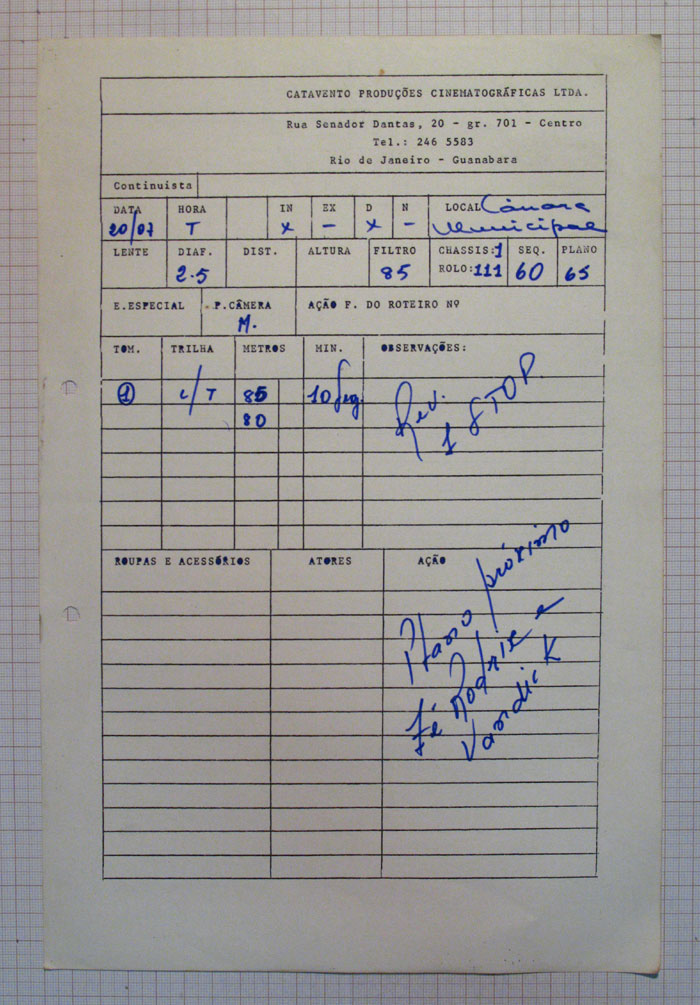 CATAVENTO PRODUÇÕES CINEMATOGRÁFICAS LTDA.
Rua Senador Dantas, 20 - gr. 701 - Centro
Tel.: 246 5583
Rio de Janeiro - Guanabara
Continuista
DATA HORA IN EX D N LOCAL Câmara
20/07 T x - x - Municipal
LENTE DIAF. DIST. ALTURA FILTRO CHASSIS:1 SEQ. PLANO
2.5 85 ROLO:111 60 65
E.ESPECIAL P.CÂMERA AÇÃO F. DO ROTEIRO Nº
M.
TOM. TRILHA METROS MIN. OBSERVAÇÕES:
1 c/T 85 10 seg.
80
Rev.
1 STOP.
ROUPAS E ACESSÓRIOS ATORES AÇÃO
Plano próximo
Zé Rodrix e
Vandick